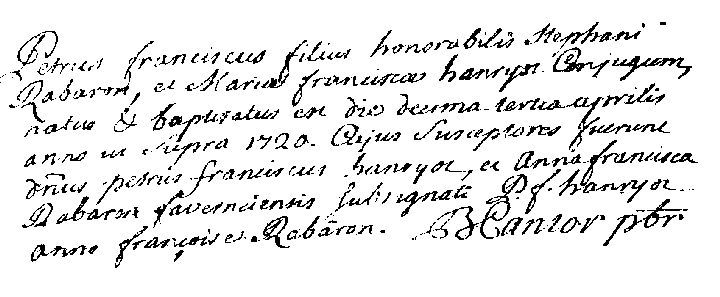 Petrus franciscus filius honorabilis Stephani
Rabaron, et Mariae franciscae hanryot Conjugum,
natus & baptisatus est die decima tertia aprilis
anno ut supra 1720. Cujus Susceptores fuerunt
dnus petrus franciscus hanryot, et Anna francisca
Rabaron faverniensis subsignati P. f. hanryot
anne françoise Rabaron. Cantor pbr